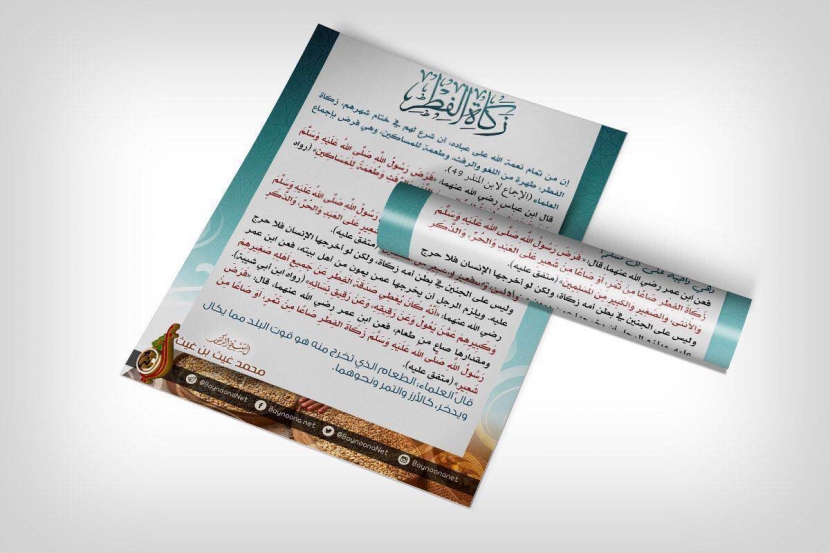 زكاة الفطر
إن من تمام نعمة الله على عباده، أن شرع لهم في ختام شهرهم، زكاة
الفطر، طهرة من اللغو والرفث، وطعمة للمساكين، وهي فرض بإجماع
العلماء (الإجماع لابن المنذر 49).
قال ابن عباس رضي الله عنهما، «فرض رسول الله صلى الله عليه وسلم
وطعمة للمساكين» (رواه
رسول الله صلى الله عليه وسلم
شعير على العبد والحر، والذكر
(متفق عليه).
وليس على الجنين في بطن أمه زكاة، ولكن لو أخرجها الإنسان فلا حرج
عليه، ويلزم الرجل أن يخرجها عمن يمون من أهل بيته، فعن ابن عمر
رضي الله عنهما، «أنه كان يعطي صدقة الفطر عن جميع أهله صغيرهم
وكبيرهم عمن يعول وعن رقيقه، وعن رقيق نسائه» (رواه ابن أبي شيبة).
ومقدارها صاع من طعام، فعن ابن عمر رضي الله عنهما، قال: «فرض
رسول الله صلى الله عليه وسلم زكاة الفطر صاعًا من تمر، أو صاعًا من
شعير» (متفق عليه).
قال العلماء: الطعام الذي تخرج منه هو قوت البلد مما يكال
ويدخر، كالأرز والتمر ونحوهما.
محمد غيث بن غيث
@BaynoonaNet
Baynoona.net
@BaynoonaNet
@BaynoonaNet
فعن ابن عمر رضي الله عنهما، قال: «فرض رسول الله صلى الله عليه وسلم
زكاة الفطر صاعًا من تمر، أو صاعًا من شعير على العبد والحر، والذكر
والأنثى، والصغير والكبير من المسلمين» (متفق عليه).
وليس على الجنين في بطن أمه زكاة، ولكن لو أخرجها الإنسان فلا حرج